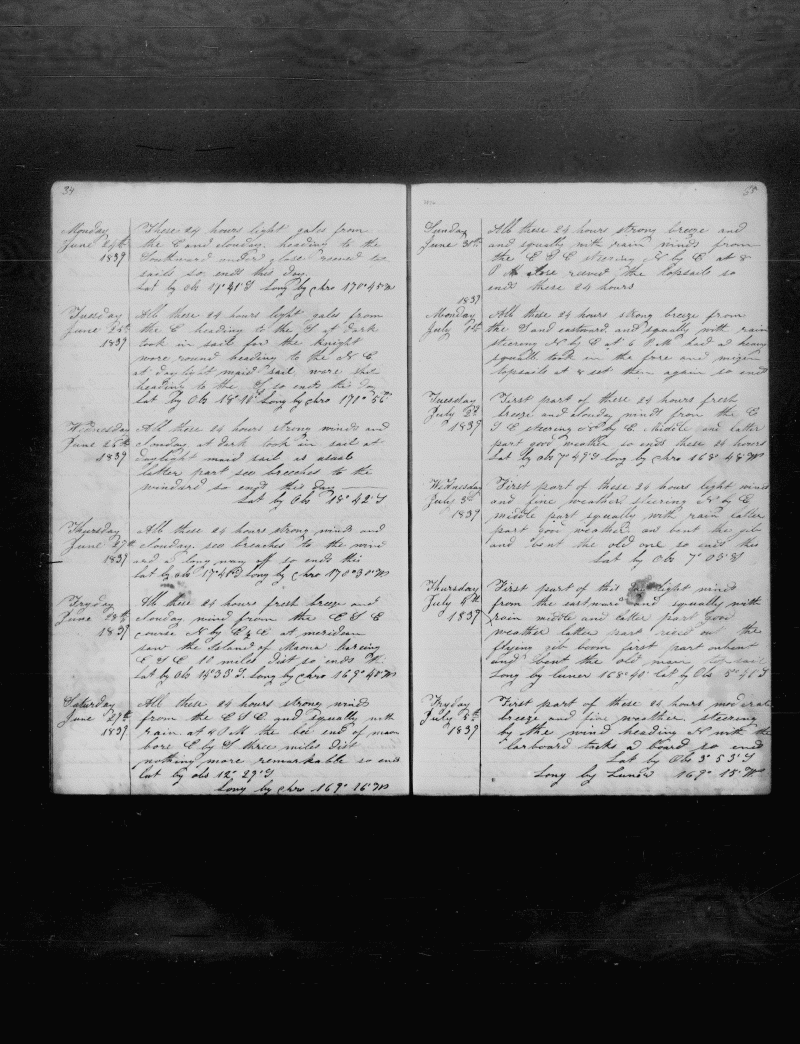 34
Monday These 24 hours light gales from
June 24th the E and cloudy heading to the
1839 Southward under close reefed to
sails so ends this day
Lat by Obs 17° 41' S Long by Chro 170° 45' W
Tuesday All these 24 hours light gales from
June 25th the E heading to the S at dark
1839 took in sail for the Knight
wore round heading to the N E
at daylight maid sail wore ship
heading to the S so ends the day
Lat by Obs 18° 10' Long by Chro 171° 56'
Wednesday All these 24 hours strong winds and
June 26th Cloudy at dark took in sail at
1839 daylight maid sail
latter part see breeches to the
windard so ends this day
Lat by Obs 18° 42' S
Thursday All these 24 hours strong winds and
June 27th cloudy, see breaches to the wind
1839 ard a long way off so ends this
Lat by obs 17° 41' Long by Chro 170° 30' W
Fryday All these 24 hours fresh breeze and
June 28th cloudy wind from the E S E
1839 course N by E & E at meridean
saw the Island of Maona bareing
E S E 10 miles dist so ends
Lat by Obs 14° 33' S. Long by Chro 169° 48' W
Saturday All these 24 hours strong winds
June 29th from the E S E and squally with
1839 rain at 4 P M the end of
bore E by S three miles Dist
nothing more remarkable so ends
Lat by obs 12° 29' S
Long by Chro 169° 16' W
35
Sunday All these 24 hours strong breeze and
June 30th and squally with rain winds from
the E S E steering N by E at 8
P M close reeved the topsails so
ends these 24 hours
1839
Monday All these 24 hours strong breeze from
July 1st the S and eastward and squally with rain
steering N by E at 6 P M had a heavy
squall took in the fore and mizen
topsails at 8 set them again so ends
Tuesday First part of these 24 hours fresh
July 2d breeze and cloudy winds from the E
1839 S E steering N by E. Middle and latter
part good weather so ends these 24 hours
Lat by obs 7° 49' S long by Chro 168° 48' W
Wednesday First part of these 24 hours light winds
July 3d and fine weather steering N by E
1839 middle part squally with rain latter
part good weather bent the jib
and bent the old one so ends this
Lat by Obs 7° 05' S
Thursday First part of this light winds
July 4th from the eastward and squally with
1839 rain middle and latter part good
weather latter part the
flying jib boom first part unbent
and bent the old main top sail
Long by luner 168° 40' Lat by Obs 5° 40' S
Fryday First part of these 24 hours moderate
July 5th breeze and fine weather, steering
1839 by the wind heading N with the
larboard tacks a board so ends
Lat by Obs 3° 53' S
Long by Lunar 169° 15' W